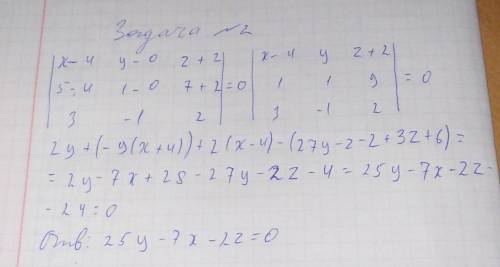 Задача №2
| x-4 y-0 z+2 |
| 5-4 1-0 7+2 | = 0
| 3 -1 2 |
| x-4 y z+2 |
| 1 1 9 | = 0
| 3 -1 2 |
2y+(-9(x+4))+2(x-4)-(27y-z-2+3z+6)=
=2y-7x+28-27y-2z-4=25y-7x-2z-
-24=0
Отв: 25y-7x-2z=0